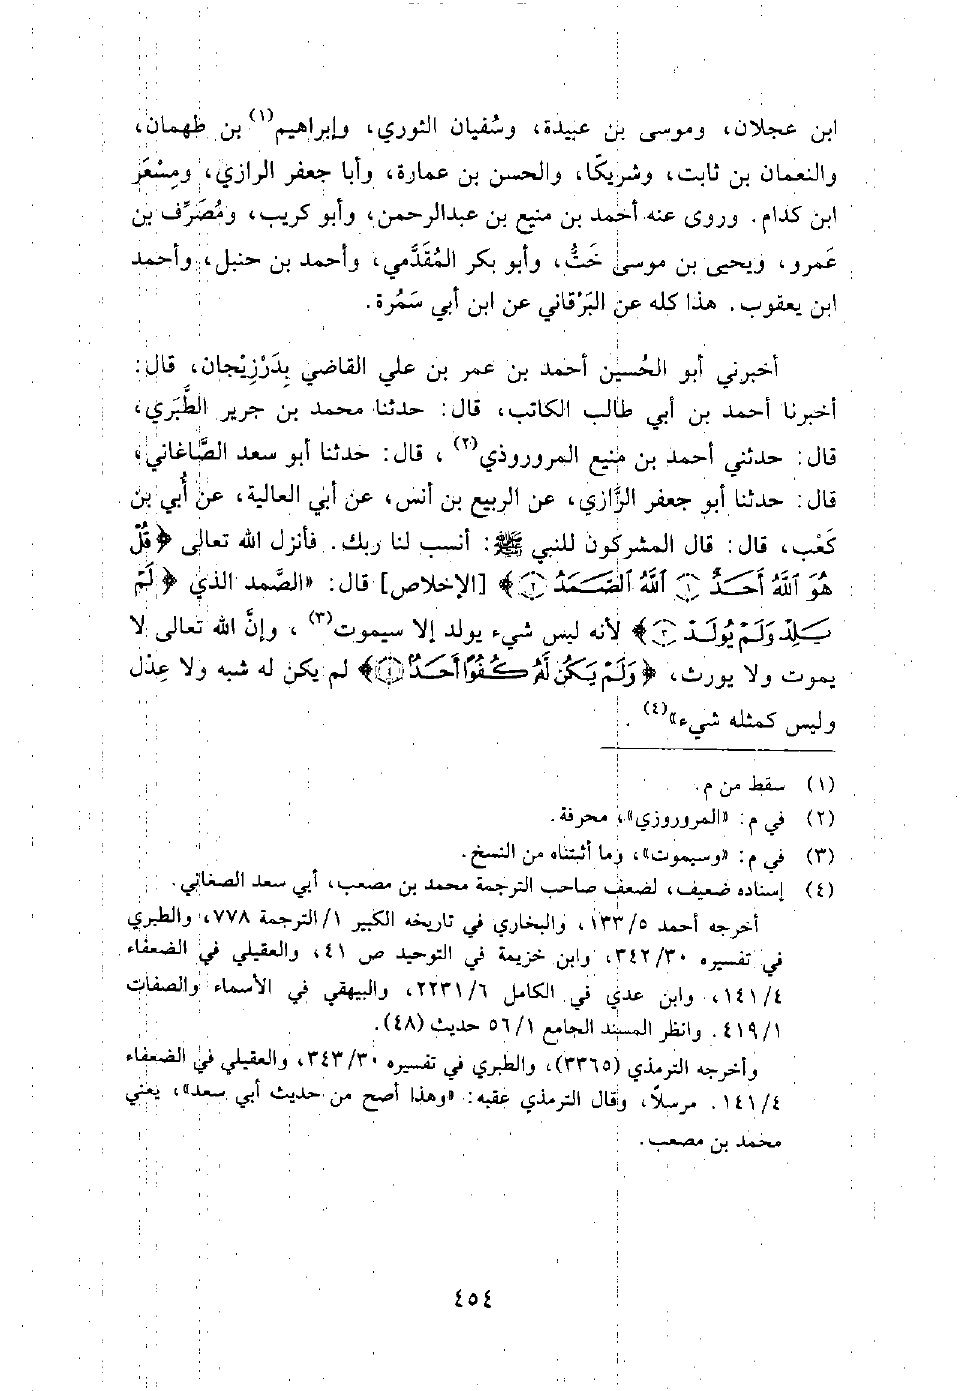 ابن عجلان، وموسى بن عبيدة، وسُفيان الثوري، وإبراهيم(١) بن طهمان،
والنعمان بن ثابت، وشريكًا، والحسن بن عمارة، وأبا جعفر الرازي، ومِسْعَر
ابن كدام. وروى عنه أحمد بن منيع بن عبدالرحمن، وأبو كريب، ومُصَرِّف بن
عَمرو، ويحيى بن موسى خَتُّ، وأبو بكر المُقَدَّمي، وأحمد بن حنبل، وأحمد
ابن يعقوب. هذا كله عن البَرْقاني عن ابن أبي سَمُرة.
أخبرني أبو الحُسين أحمد بن عمر بن علي القاضي بِدَرْزِيْجان، قال:
أخبرنا أحمد بن أبي طالب الكاتب، قال: حدثنا محمد بن جرير الطَّبَري،
قال: حدثني أحمد بن منيع المروروذي(٢)، قال: حدثنا أبو سعد الصَّاغاني،
قال: حدثنا أبو جعفر الرَّازي، عن الربيع بن أنس، عن أبي العالية، عن أُبي بن
كَعْب، قال: قال المشركون للنبي ﷺ: أنسب لنا ربك. فأنزل الله تعالى ﴿قُلْ
هُوَ ٱللَّهُ أَحَدٌ ۝١ ٱللَّهُ ٱلصَّمَدُ ۝٢﴾ [الإخلاص] قال: «الصَّمد الذي ﴿لَمْ
يَلِدْ وَلَمْ يُولَدْ ۝٣﴾ لأنه ليس شيء يولد إلا سيموت(٣)، وإنَّ الله تعالى لا
يموت ولا يورث، ﴿وَلَمْ يَكُن لَّهُۥ كُفُوًا أَحَدٌ ۝٤﴾ لم يكن له شبه ولا عِدْل
وليس كمثله شيء»(٤).
(١) سقط من م.
(٢) في م: «المروروزي»، محرفة.
(٣) في م: «وسيموت»، وما أثبتناه من النسخ.
(٤) إسناده ضعيف، لضعف صاحب الترجمة محمد بن مصعب، أبي سعد الصغاني.
أخرجه أحمد ٥/ ١٣٣، والبخاري في تاريخه الكبير ١/ الترجمة ٧٧٨، والطبري
في تفسيره ٣٠/ ٣٤٢، وابن خزيمة في التوحيد ص ٤١، والعقيلي في الضعفاء
٤/ ١٤١، وابن عدي في الكامل ٦/ ٢٢٣١، والبيهقي في الأسماء والصفات
١/ ٤١٩. وانظر المسند الجامع ١/ ٥٦ حديث (٤٨).
وأخرجه الترمذي (٣٣٦٥)، والطبري في تفسيره ٣٠/ ٣٤٣، والعقيلي في الضعفاء
٤/ ١٤١. مرسلًا، وقال الترمذي عقبه: «وهذا أصح من حديث أبي سعد»، يعني
محمد بن مصعب.
٤٥٤